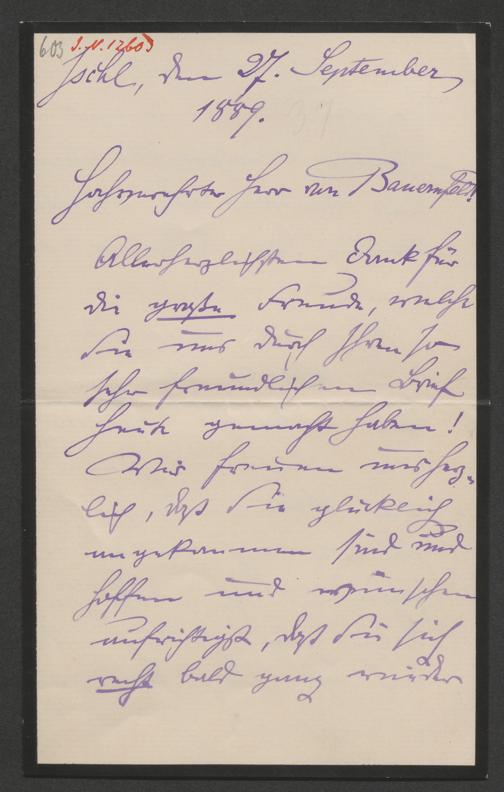 603 I.N. 12603
Ischl, den 27. September
1889.
37
Hochverehrter Herr von Bauernfeld!
Allerherzlichsten Dank für
die große Freude, welche
Sie uns durch Ihren so
sehr freundlichen Brief
heute gemacht haben!
Wir freuen uns herz-
lich, daß Sie glücklich
angekommen sind und
hoffen und wünschen
aufrichtigst, daß Sie sich
recht bald ganz wieder